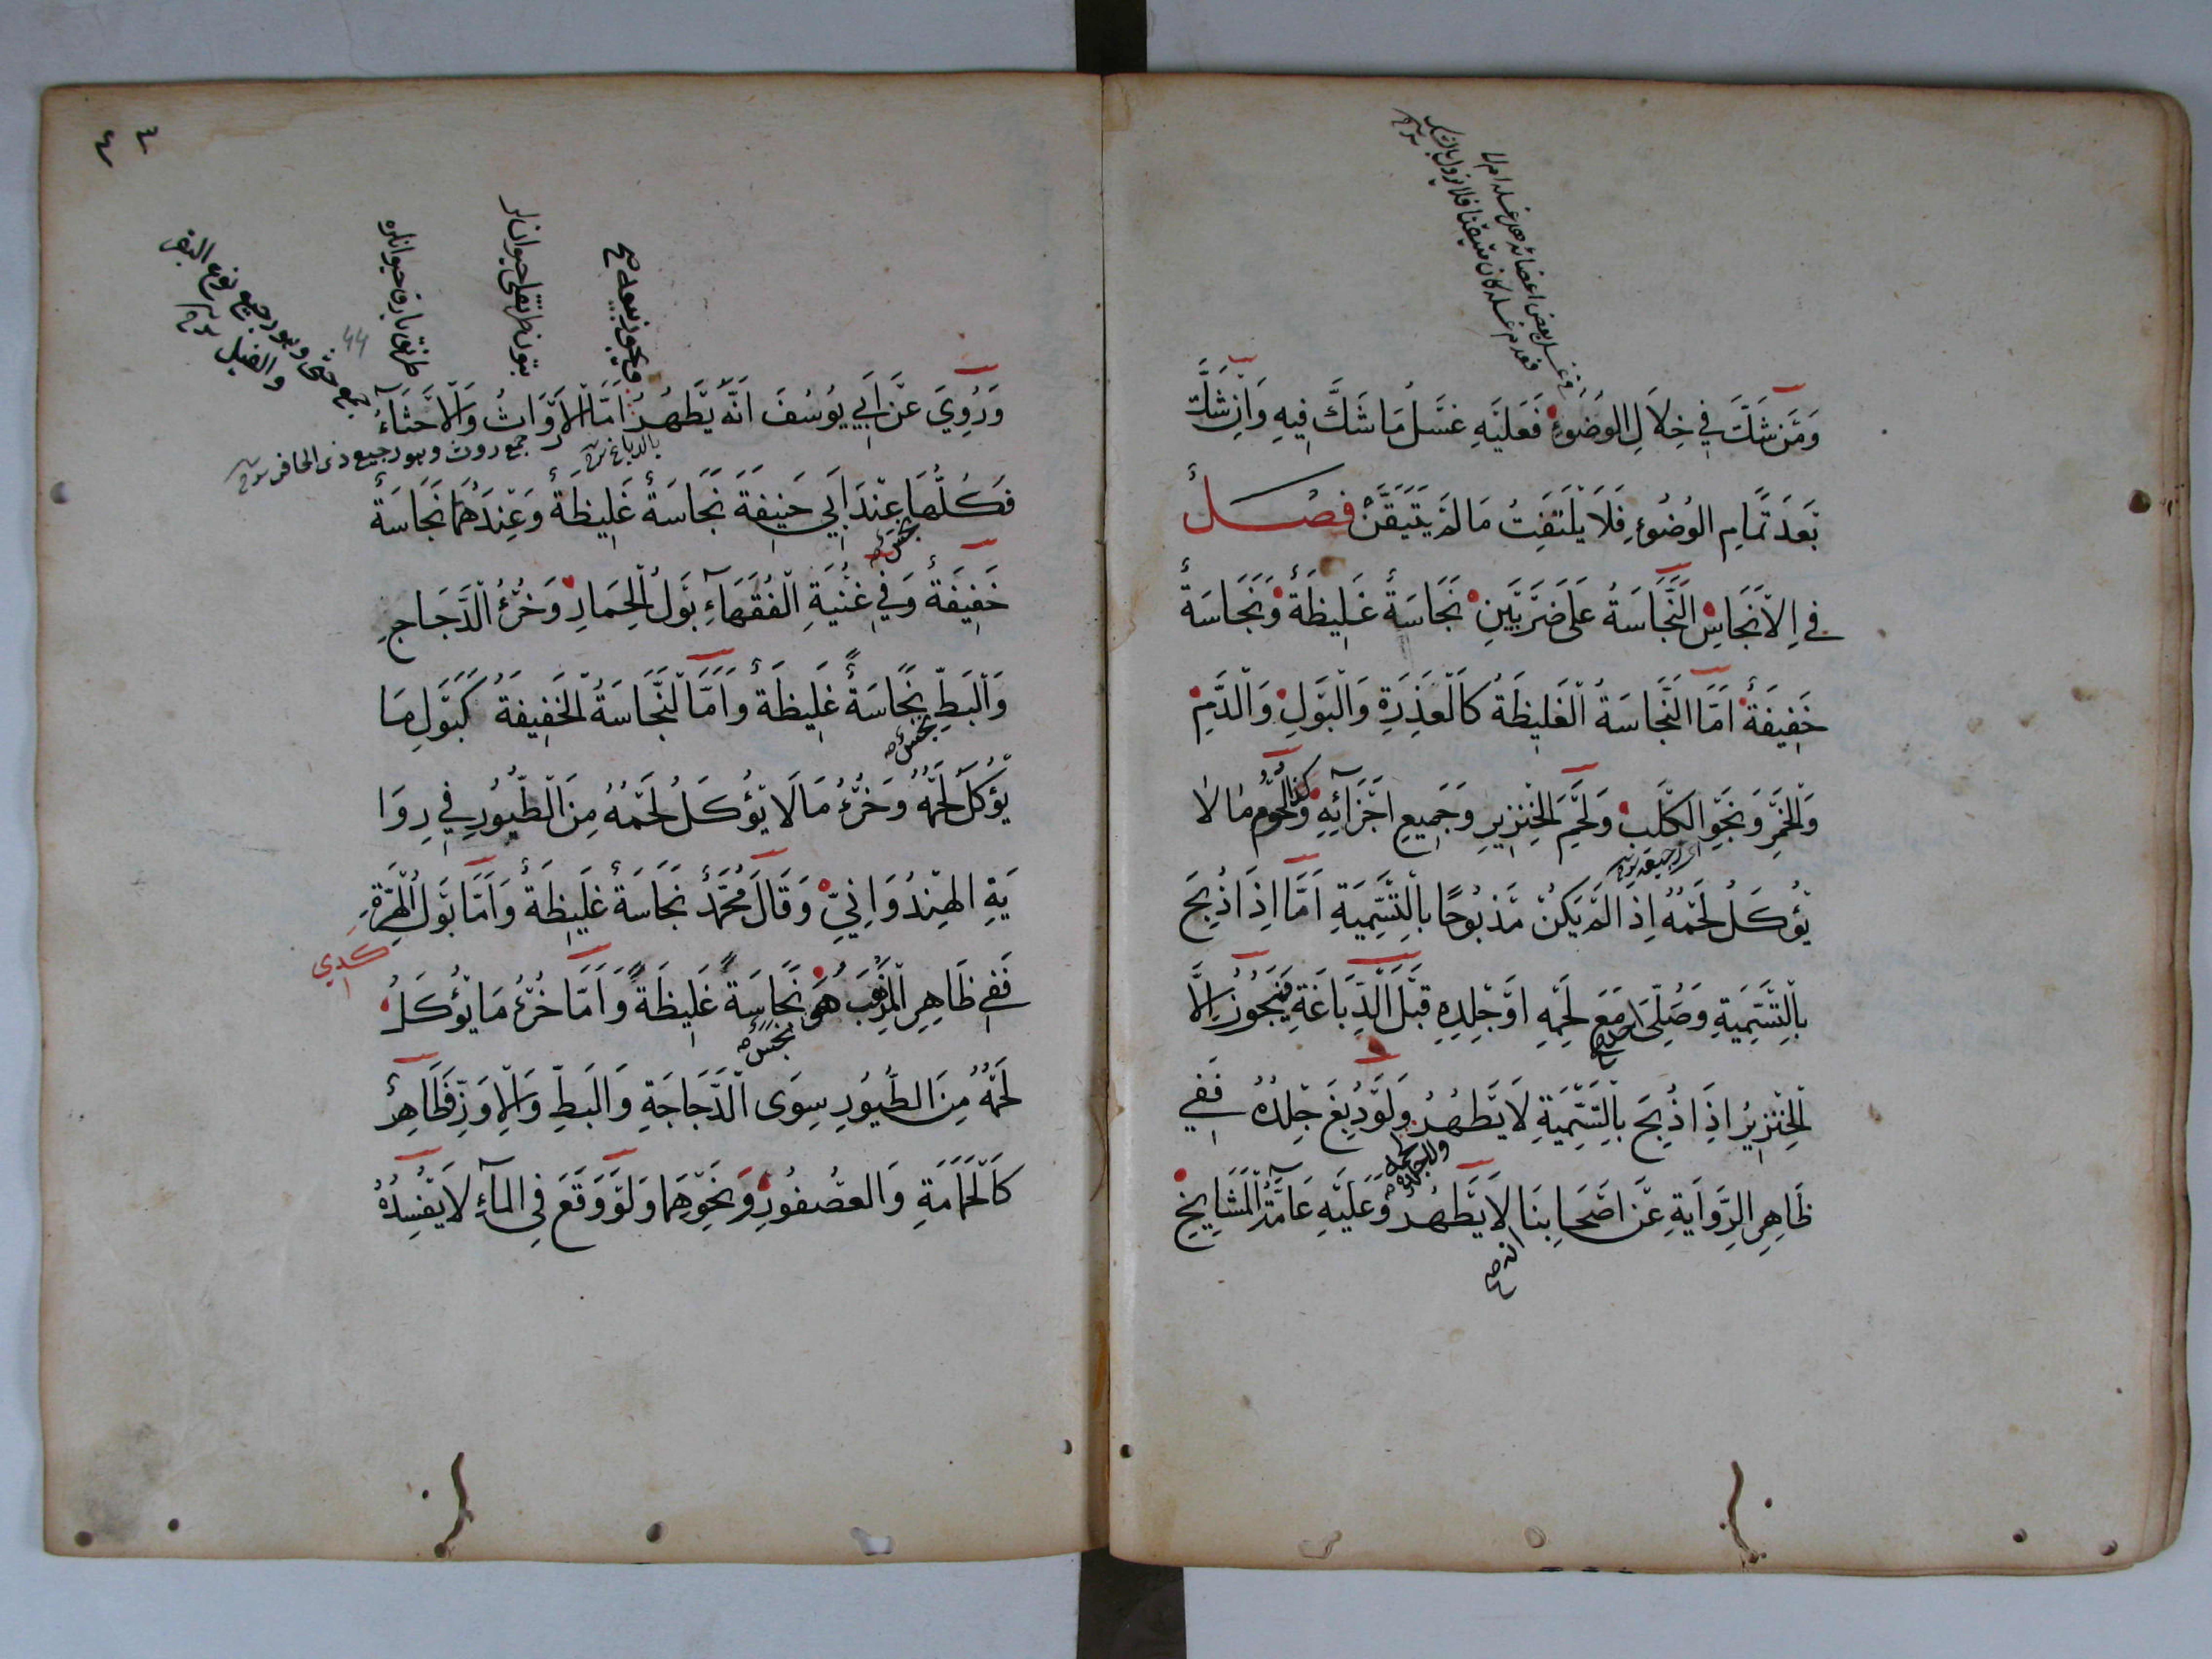 وَمَنْ شَكَّ فِي خِلَالِ الْوُضُوءِ فَعَلَيْهِ غَسْلُ مَا شَكَّ فِيهِ وَاِنْ شَكَّ
بَعْدَ تَمَامِ الْوُضُوءِ فَلَا يَلْتَفِتُ مَا لَمْ يَتَيَقَّنْ فصل
فِي الْاَنْجَاسِ النَّجَاسَةُ عَلَى ضَرْبَيْنِ نَجَاسَةٌ غَلِيظَةٌ وَنَجَاسَةٌ
خَفِيفَةٌ اَمَّا النَّجَاسَةُ الْغَلِيظَةُ كَالْعَذِرَةِ وَالْبَوْلِ وَالدَّمِ
وَالْخَمْرِ وَنَجْوِ الْكَلْبِ وَلَحْمِ الْخِنْزِيرِ وَجَمِيعِ اَجْزَآئِهِ وَكذا لُحُومُ مَا لَا
يُؤْكَلُ لَحْمُهُ اِذَا لَمْ يَكُنْ مَذْبُوحًا بِالتَّسْمِيَةِ اَمَّا اِذَا ذُبِحَ
بِالتَّسْمِيَةِ وَصُلِّيَ مَعَ لَحْمِهِ اَوْ جِلْدِهِ قَبْلَ الدِّبَاغَةِ فَيَجُوزُ اِلَّا
الْخِنْزِيرُ اِذَا ذُبِحَ بِالتَّسْمِيَةِ لَا يَطْهُرُ وَلَوْ دُبِغَ جِلْدُهُ فَفِي
ظَاهِرِ الرِّوَايَةِ عَنْ اَصْحَابِنَا لَا يَطْهُرُ وَعَلَيْهِ عَامَّةُ الْمَشَايِخِ
٤٤
44
ويجوز بيعه صح
وَرُوِيَ عَنْ اَبِي يُوسُفَ اَنَّهُ يَطْهُرُ اَمَّا الْاَرْوَاثُ وَالْاَخْثَاءُ
بالدباغ شرح
جمع روث وهو رجيع ذى الحافر
فَكُلُّهَا عِنْدَ اَبِي حَنِيفَةَ نَجَاسَةٌ غَلِيظَةٌ وَعِنْدَهُمَا نَجَاسَةٌ
خَفِيفَةٌ وَفِي غُنْيَةِ الْفُقَهَآءِ بَوْلُ الْحِمَارِ وَخُرْءُ الدَّجَاجِ
وَالْبَطِّ نَجَاسَةٌ غَلِيظَةٌ وَاَمَّا النَّجَاسَةُ الْخَفِيفَةُ كَبَوْلِ مَا
يُؤْكَلُ لَحْمُهُ وَخُرْءُ مَا لَا يُؤْكَلُ لَحْمُهُ مِنَ الطُّيُورِ فِي رِوَا
يَةِ الْهِنْدُوَانِيِّ وَقَالَ مُحَمَّدٌ نَجَاسَةٌ غَلِيظَةٌ وَاَمَّا بَوْلُ الْهِرَّةِ
كدي
فَفِي ظَاهِرِ الْمَذْهَبِ هُوَ نَجَاسَةٌ غَلِيظَةٌ وَاَمَّا خُرْءُ مَا يُؤْكَلُ
لَحْمُهُ مِنَ الطُّيُورِ سِوَى الدَّجَاجَةِ وَالْبَطِّ وَالْاِوَزِّ فَطَاهِرٌ
كَالْحَمَامَةِ وَالْعُصْفُورِ وَنَحْوِهِمَا وَلَوْ وَقَعَ فِي الْمَآءِ لَا يُفْسِدُهُ